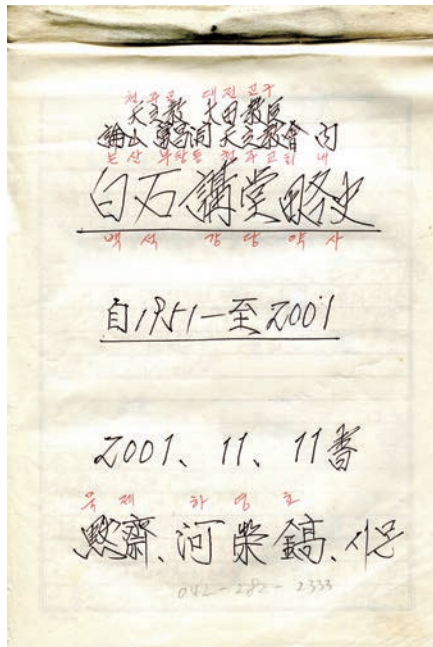 천주교 대전교구
天主教 大田教區
論山 富昌洞 天主教會 內
논산 부창동 천주교회 내
白石講堂略史
백석 강당 약사
自1951-至2001
2001、11、11書
묵재 하영호
默齋、河榮鎬、시몬
042-282-2333